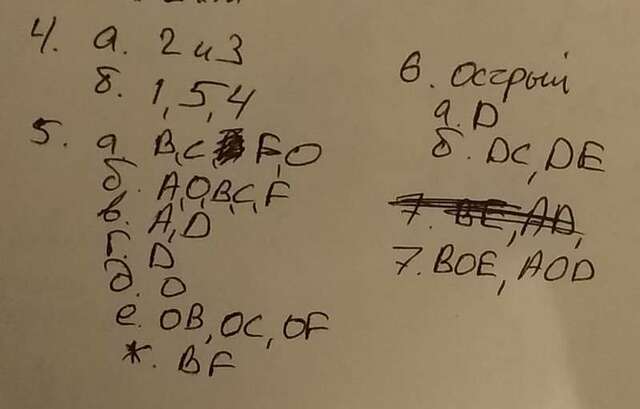 4. а. 2 и 3
б. 1, 5, 4
5. а. B, C, F, O
б. A, O, B, C, F
в. A, D
г. D
д. O
е. OB, OC, OF
ж. BF
6. Острый
а. D
б. DC, DE
7. BE, AD,
7. BOE, AOD